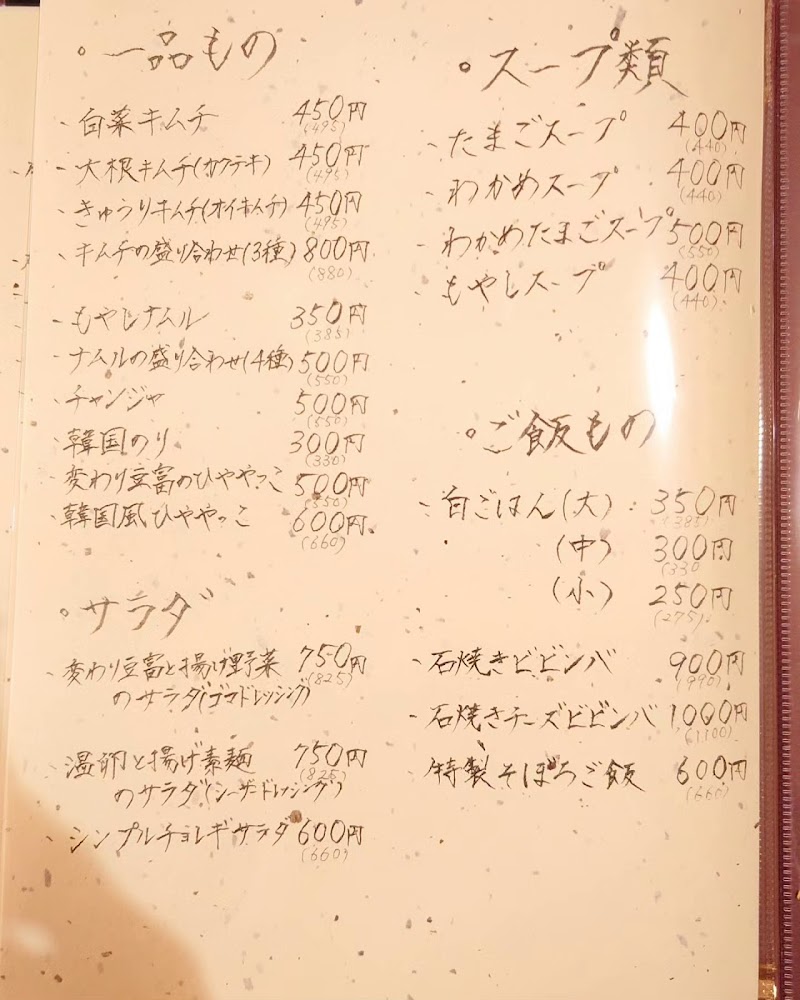 。一品もの
・白菜キムチ 450円
(495)
・大根キムチ(カクテキ) 450円
(495)
・きゅうりキムチ(オイキムチ) 450円
(495)
・キムチの盛り合わせ(3種) 800円
(880)
・もやしナムル 350円
(385)
・ナムルの盛り合わせ(4種) 500円
(550)
・チャンジャ 500円
(550)
・韓国のり 300円
(330)
・変わり豆富のひややっこ 500円
(550)
・韓国風ひややっこ 600円
(660)
。サラダ
・変わり豆富と揚げ野菜 750円
(825)
のサラダ(ゴマドレッシング)
・温卵と揚げ素麺 750円
(825)
のサラダ(シーザードレッシング)
・シンプルチョレギサラダ 600円
(660)
。スープ類
・たまごスープ 400円
(440)
・わかめスープ 400円
(440)
・わかめたまごスープ 500円
(550)
・もやしスープ 400円
(440)
。ご飯もの
・白ごはん(大) 350円
(385)
(中) 300円
(330
(小) 250円
(275)
・石焼きビビンバ 900円
(990)
・石焼きチーズビビンバ 1000円
(1100)
特製そぼろご飯 600円
(660)